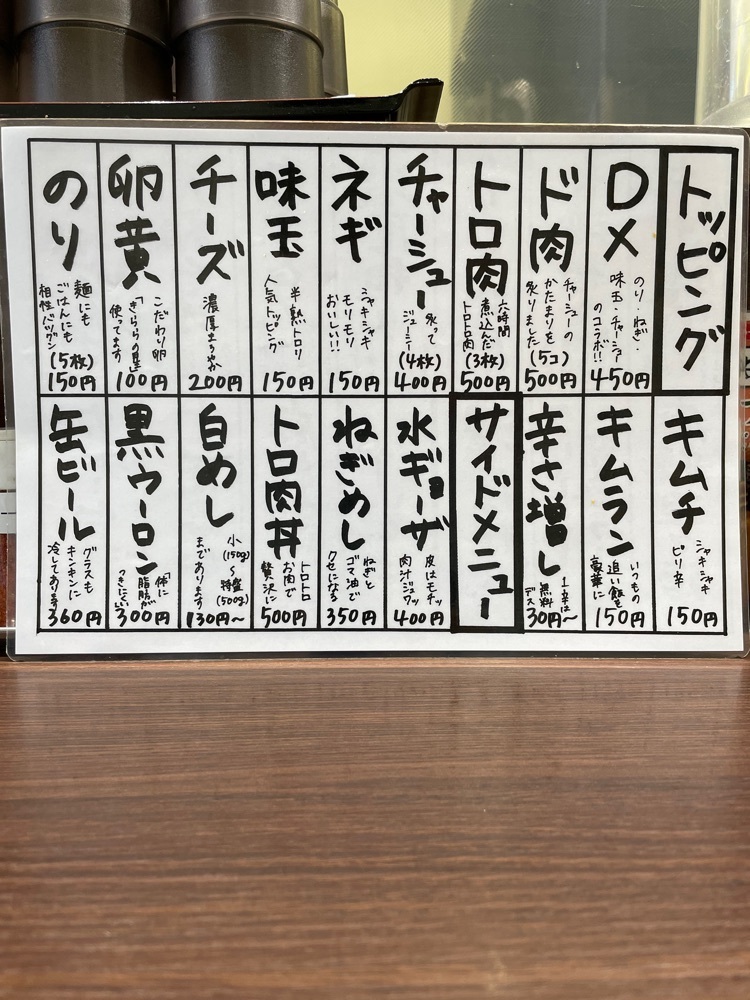 トッピング
DX
のり・ねぎ・
味玉・チャーシュー
のコラボ!!
450円
ド肉
チャーシューの
かたまりを
炙りました
(5コ)
500円
トロ肉
六時間
煮込んだ
トロトロ肉
(3枚)
500円
チャーシュー
炙って
ジューシー
(4枚)
400円
ネギ
シャキシャキ
モリモリ
おいしい!!
150円
味玉
半熟トロリ
人気トッピング
150円
チーズ
濃厚まろやか
200円
卵黄
こだわり卵
「きららの里」
使ってます
100円
のり
麺にも
ごはんにも
相性バツグン
(5枚)
150円
キムチ
シャキシャキ
ピリ辛
150円
キムラン
いつもの
追い飯を
豪華に
150円
辛さ増し
1辛は〜
無料
デス
30円〜
サイドメニュー
水ギョーザ
皮はモチッ
肉汁ジュワッ
400円
ねぎめし
ねぎと
ゴマ油で
クセになる
350円
トロ肉丼
トロトロ
お肉で
贅沢に
500円
白めし
小
(150g)
〜
特盛
(500g)
まであります
130円〜
黒ウーロン
「体に
脂肪が
つきにくい」
300円
缶ビール
グラスも
キンキンに
冷してあります
360円